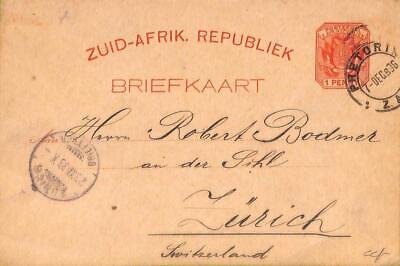 ZUID-AFRIK. REPUBLIEK
1 PENNY
BRIEFKAART
PRETORIA
DEC 96
Z.A.
Herrn Robert Bodmer
an der Sihl
Zürich
Switzerland